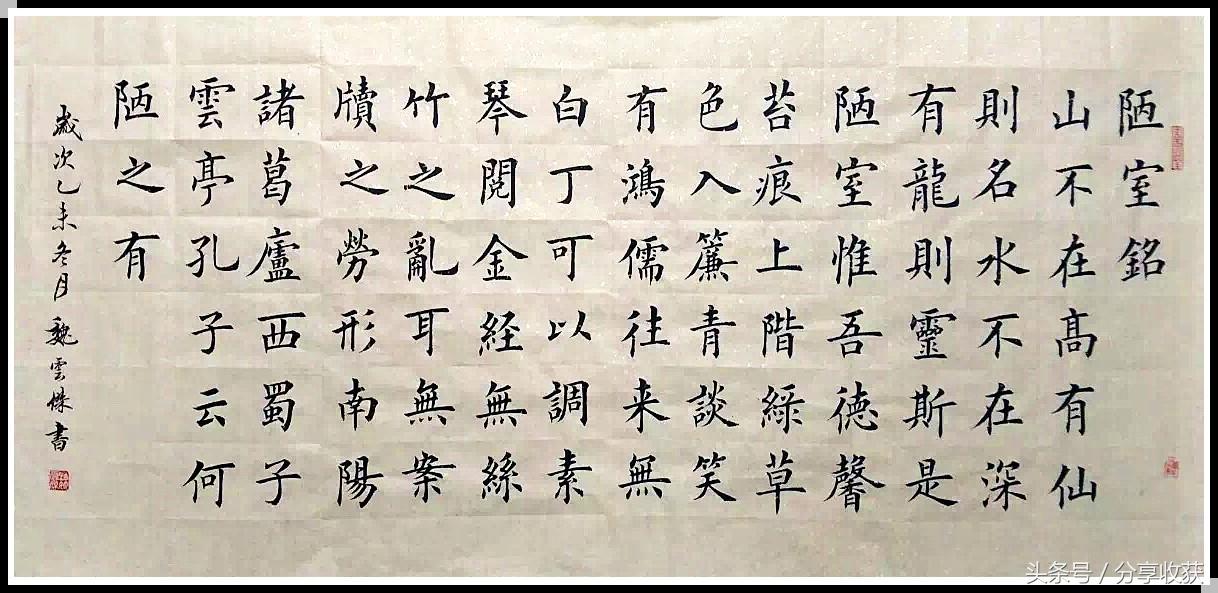 陋室銘
山不在高有仙
則名水不在深
有龍則靈斯是
陋室惟吾德馨
苔痕上階綠草
色入簾青談笑
有鴻儒往来無
白丁可以調素
琴閱金経無絲
竹之亂耳無案
牘之勞形南陽
諸葛廬西蜀子
雲亭孔子云何
陋之有
歲次乙未冬月 魏雲傑書
头条号 / 分享收获